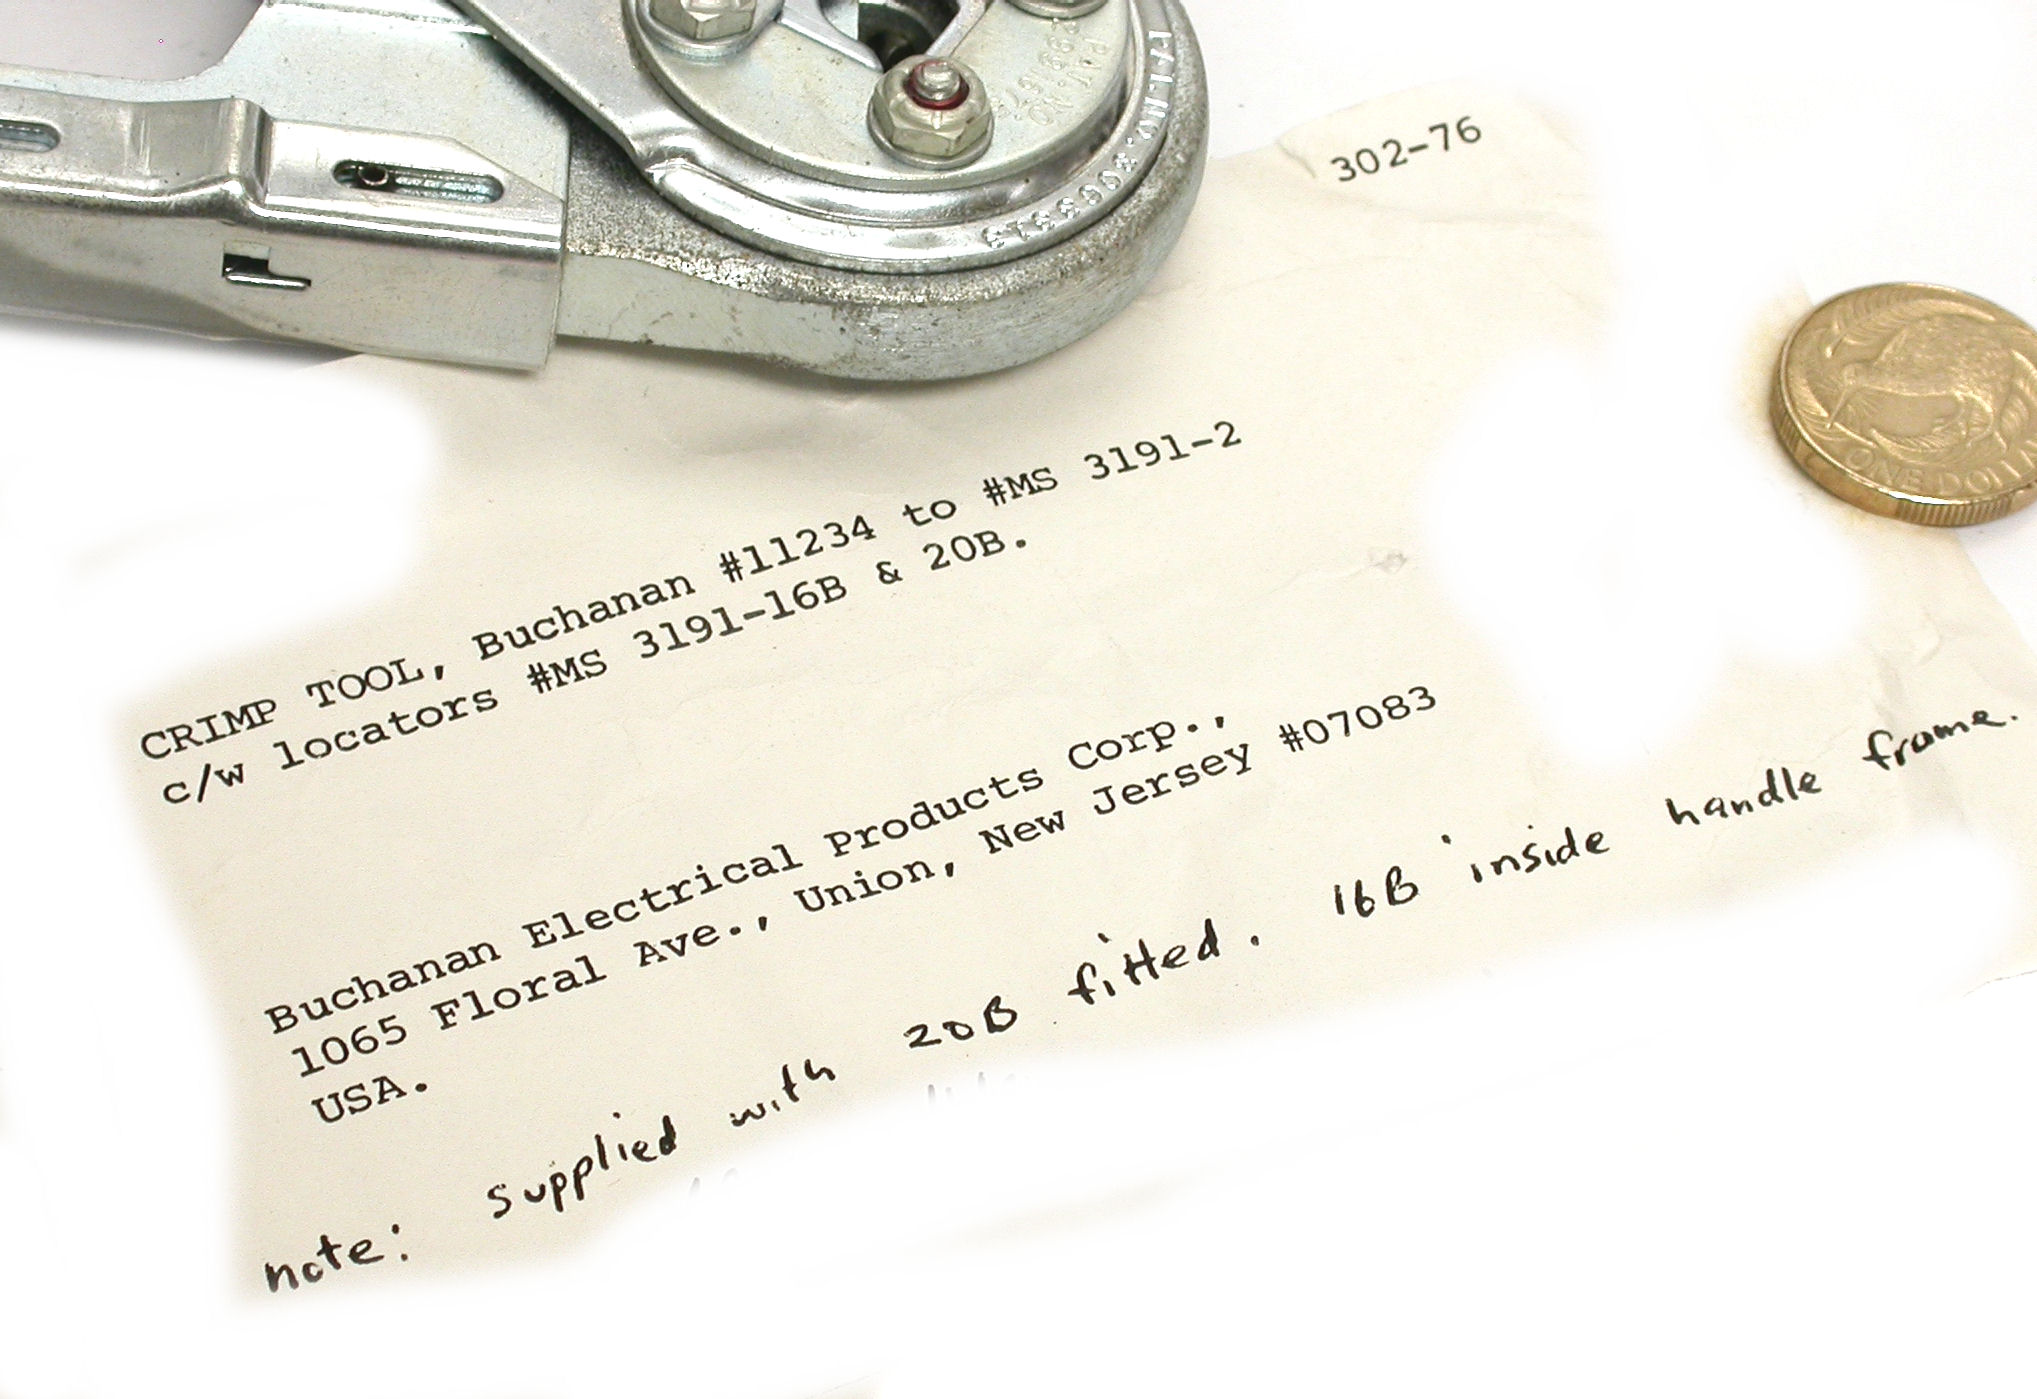 302-76
CRIMP TOOL, Buchanan #11234 to #MS 3191-2
c/w locators #MS 3191-16B & 20B.
Buchanan Electrical Products Corp.,
1065 Floral Ave., Union, New Jersey #07083
USA.
note: supplied with 20B fitted. 16B inside handle frame.
PAT. NO.
ONE